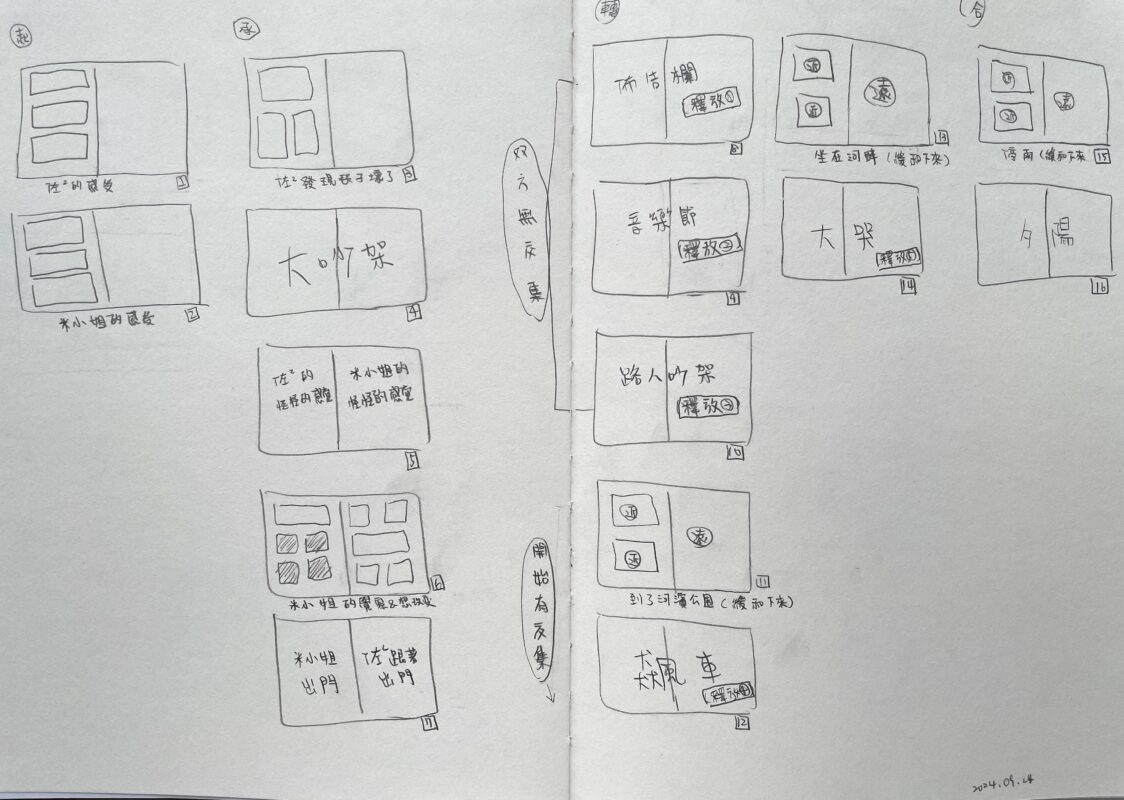 起
佐²的感受
1
米小姐的感受
2
承
佐²發現
壞了
3
大吵架
4
佐²的
怪怪的感覺
米小姐的
怪怪的感覺
5
6
米小姐
出門
佐²跟著
出門
7
双方無交集
開始有交集
轉
佈告欄
釋放①
8
音樂節
釋放②
9
路人吵架
釋放③
10
近
近
遠
11
到了河濱公園(緩和下來)
飆風車
釋放④
12
近
近
遠
13
坐在河畔(緩和下來)
大哭
釋放⑤
14
合
近
近
遠
停雨(緩和下來
15
夕陽
16
2024.09.24